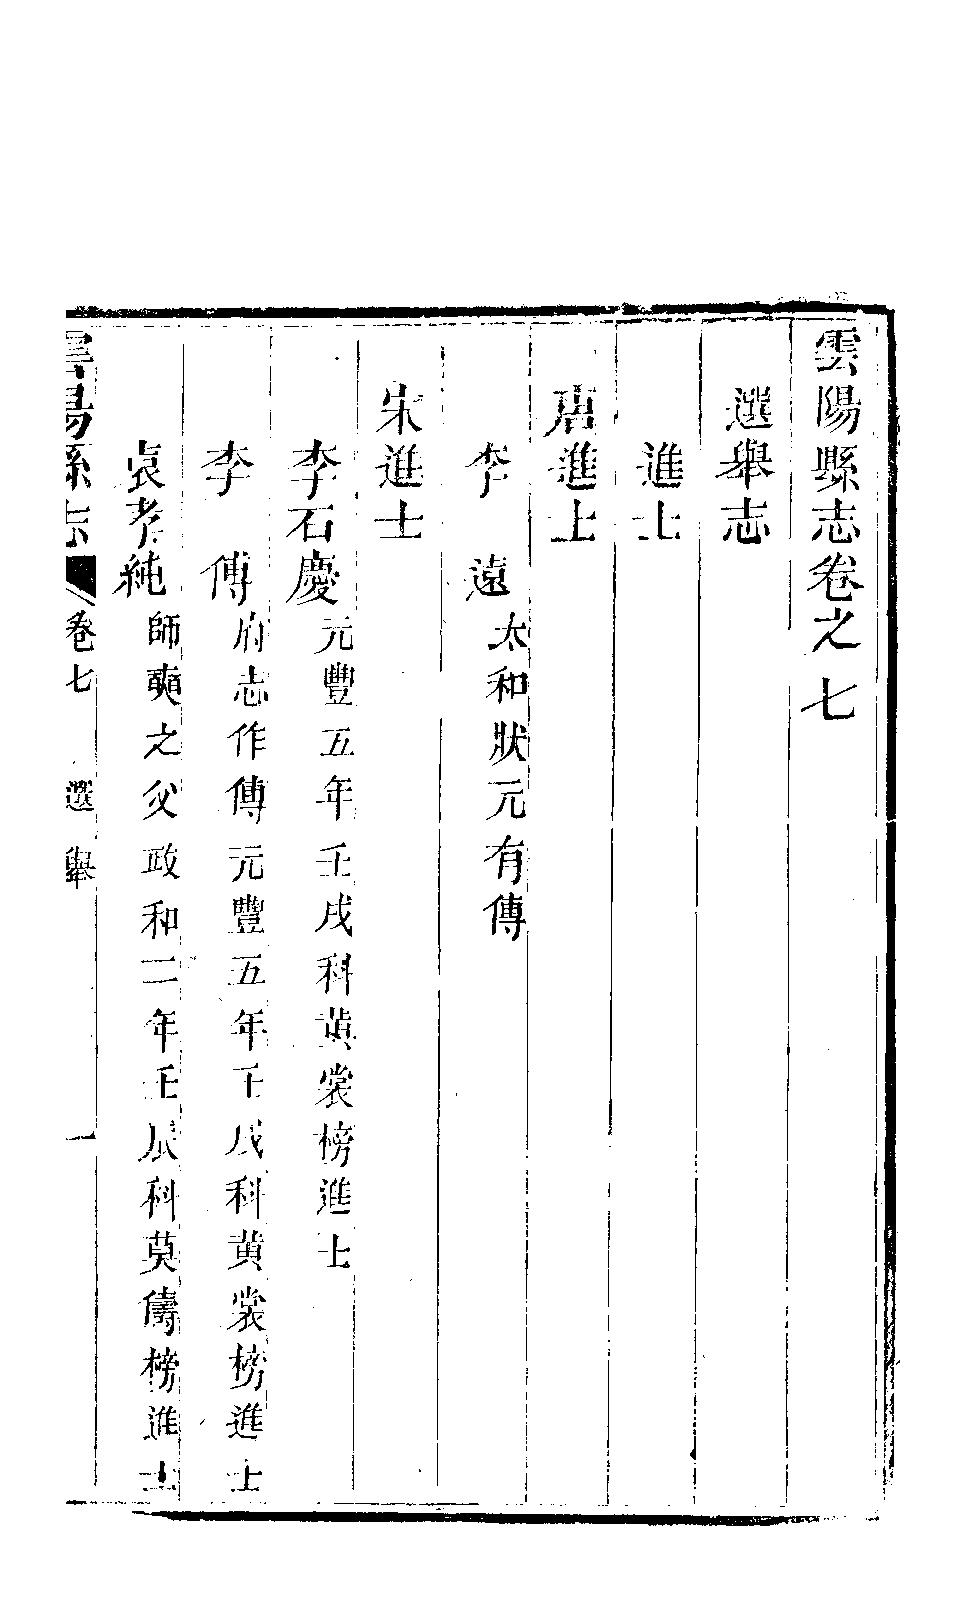 雲陽縣志卷之七
選舉志
進士
唐進士
李　遠 太和狀元有傳
宋進士
李石慶 元豐五年壬戌科黃裳榜進士
李　傅 府志作傳元豐五年壬戌科黃裳榜進士
袁孝純 師奭之父政和二年壬辰科莫儔榜進士
雲陽縣志 卷七 選舉 一